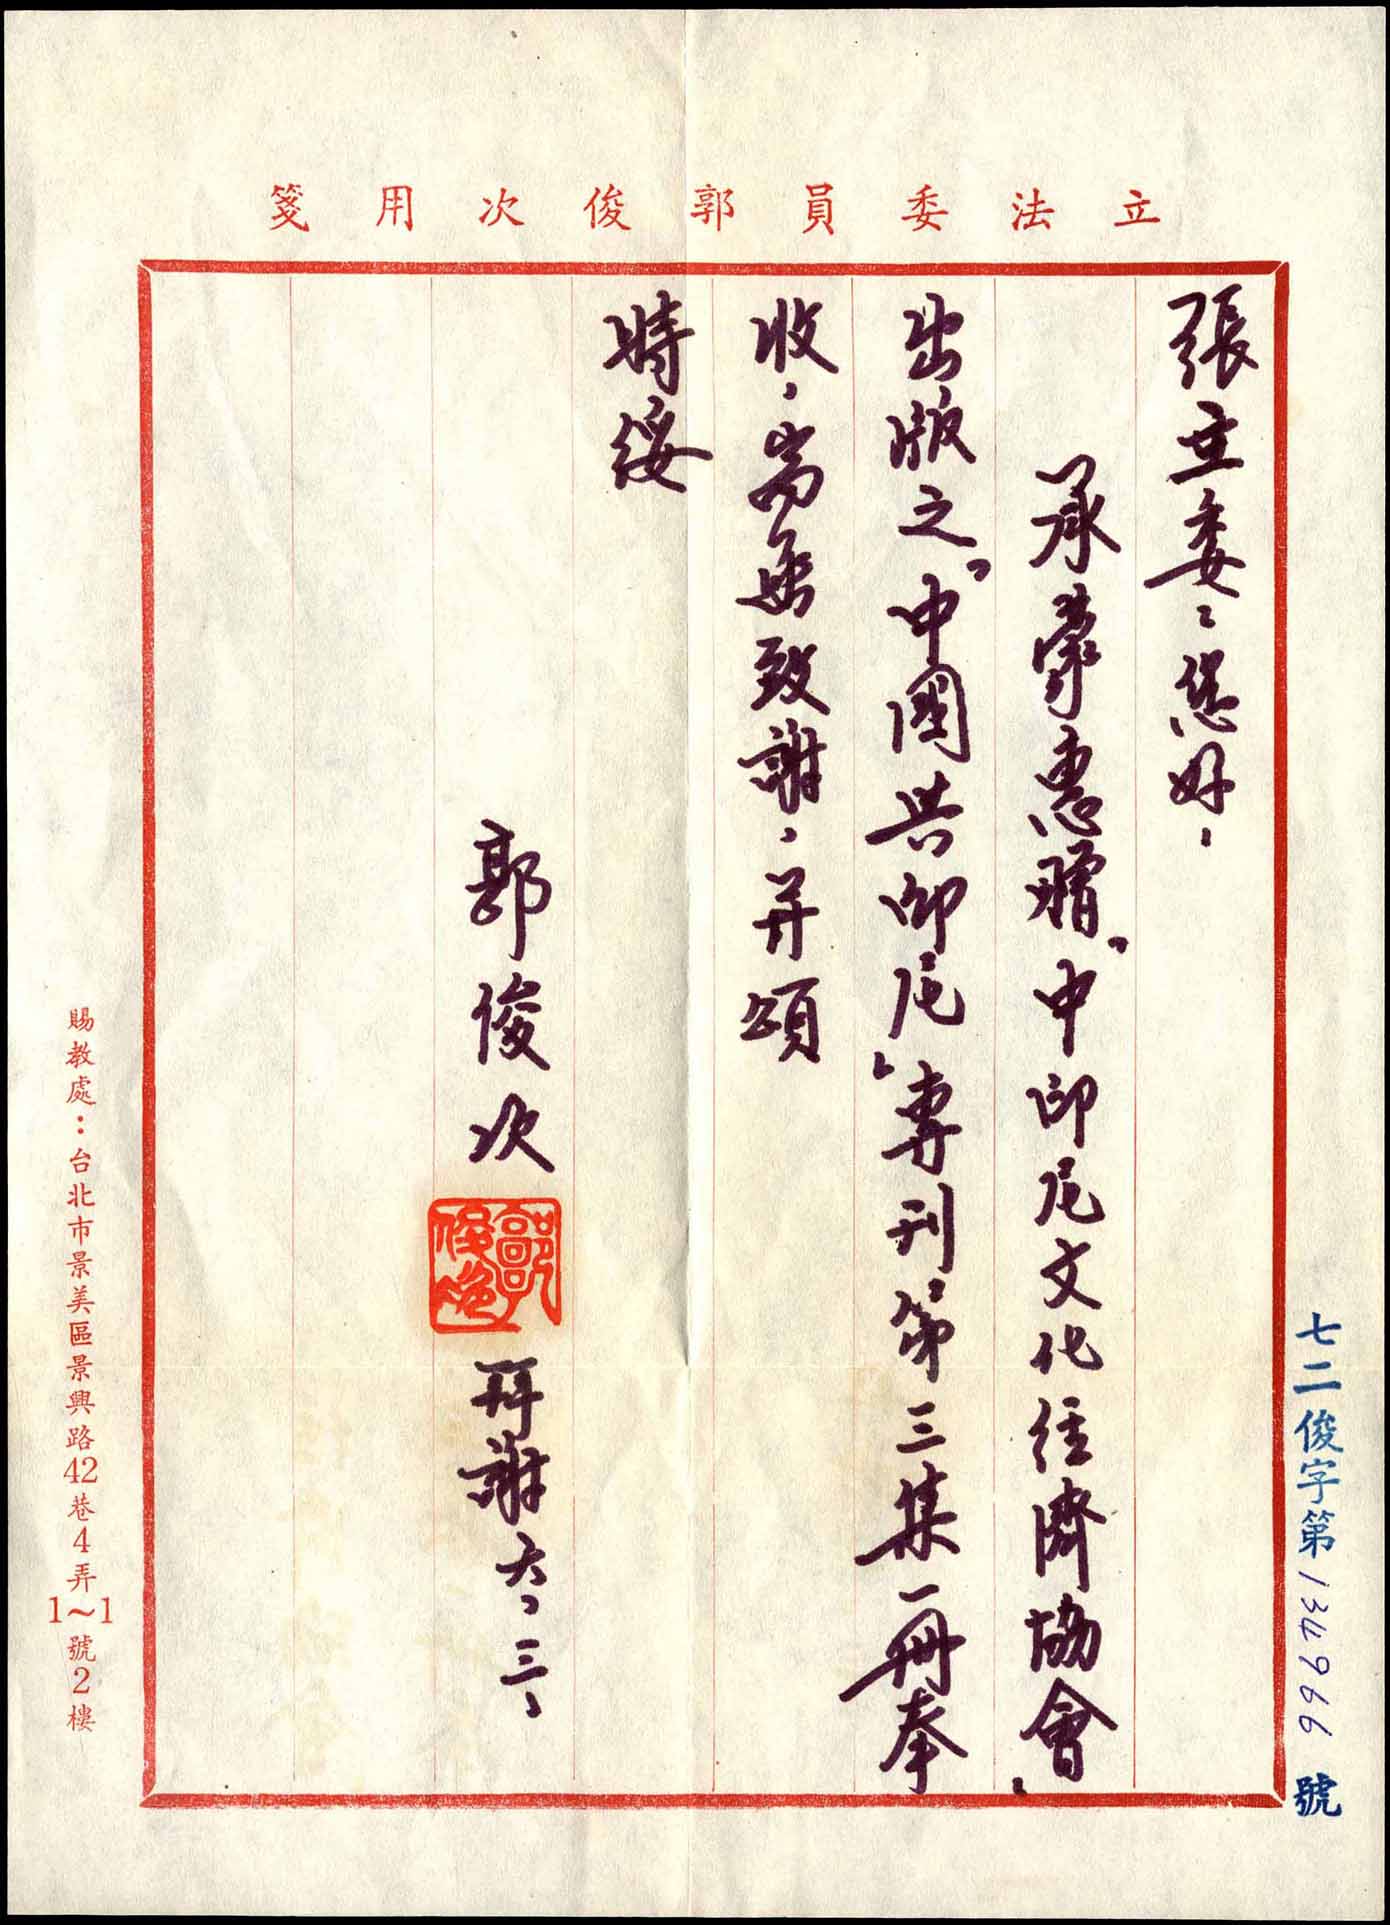 立法委員郭俊次用箋
張主委：您好，
承蒙惠贈“中印尼文化經濟協會”
出版之“中國共印尼”專刊第三集一冊奉
收，耑函致謝，并頌
時綏
郭俊次
郭俊次
再謝六、三、
七二俊字第134966號
賜教處：台北市景美區景興路42巷4弄1~1號2樓